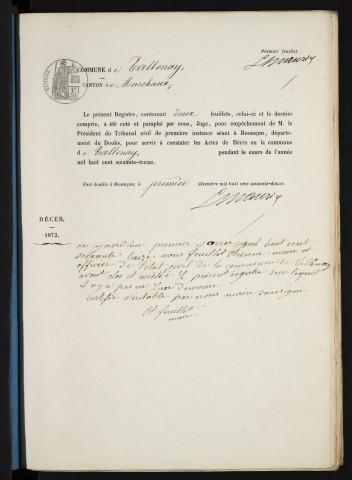 Premier feuillet.
COMMUNE d e Tallenay,
CANTON de Marchaux,
Le présent Registre, contenant deux feuillets, celui-ci et le dernier
compris, a été coté et paraphé par nous, Juge, pour empêchement de M. le
Président du Tribunal civil de première instance séant à Besançon, départe-
ment du Doubs, pour servir à constater les Actes de Décès en la commune
d e Tallenay, pendant le cours de l'année
mil huit cent soixante-treize.
Fait double à Besançon, le premier décembre mil huit cent soixante-douze.
DÉCÈS.
1873.
ce jourd'hui premier janvier mil huit cent
soixante nous feuillet Etienne maire et
officier de l'état civil de la commune de Tallenay
avons clos et arrêté le présent registre sur lequel
il n'y a pas
certifié véritable par nous maire soussigné
Et feuillet
maire